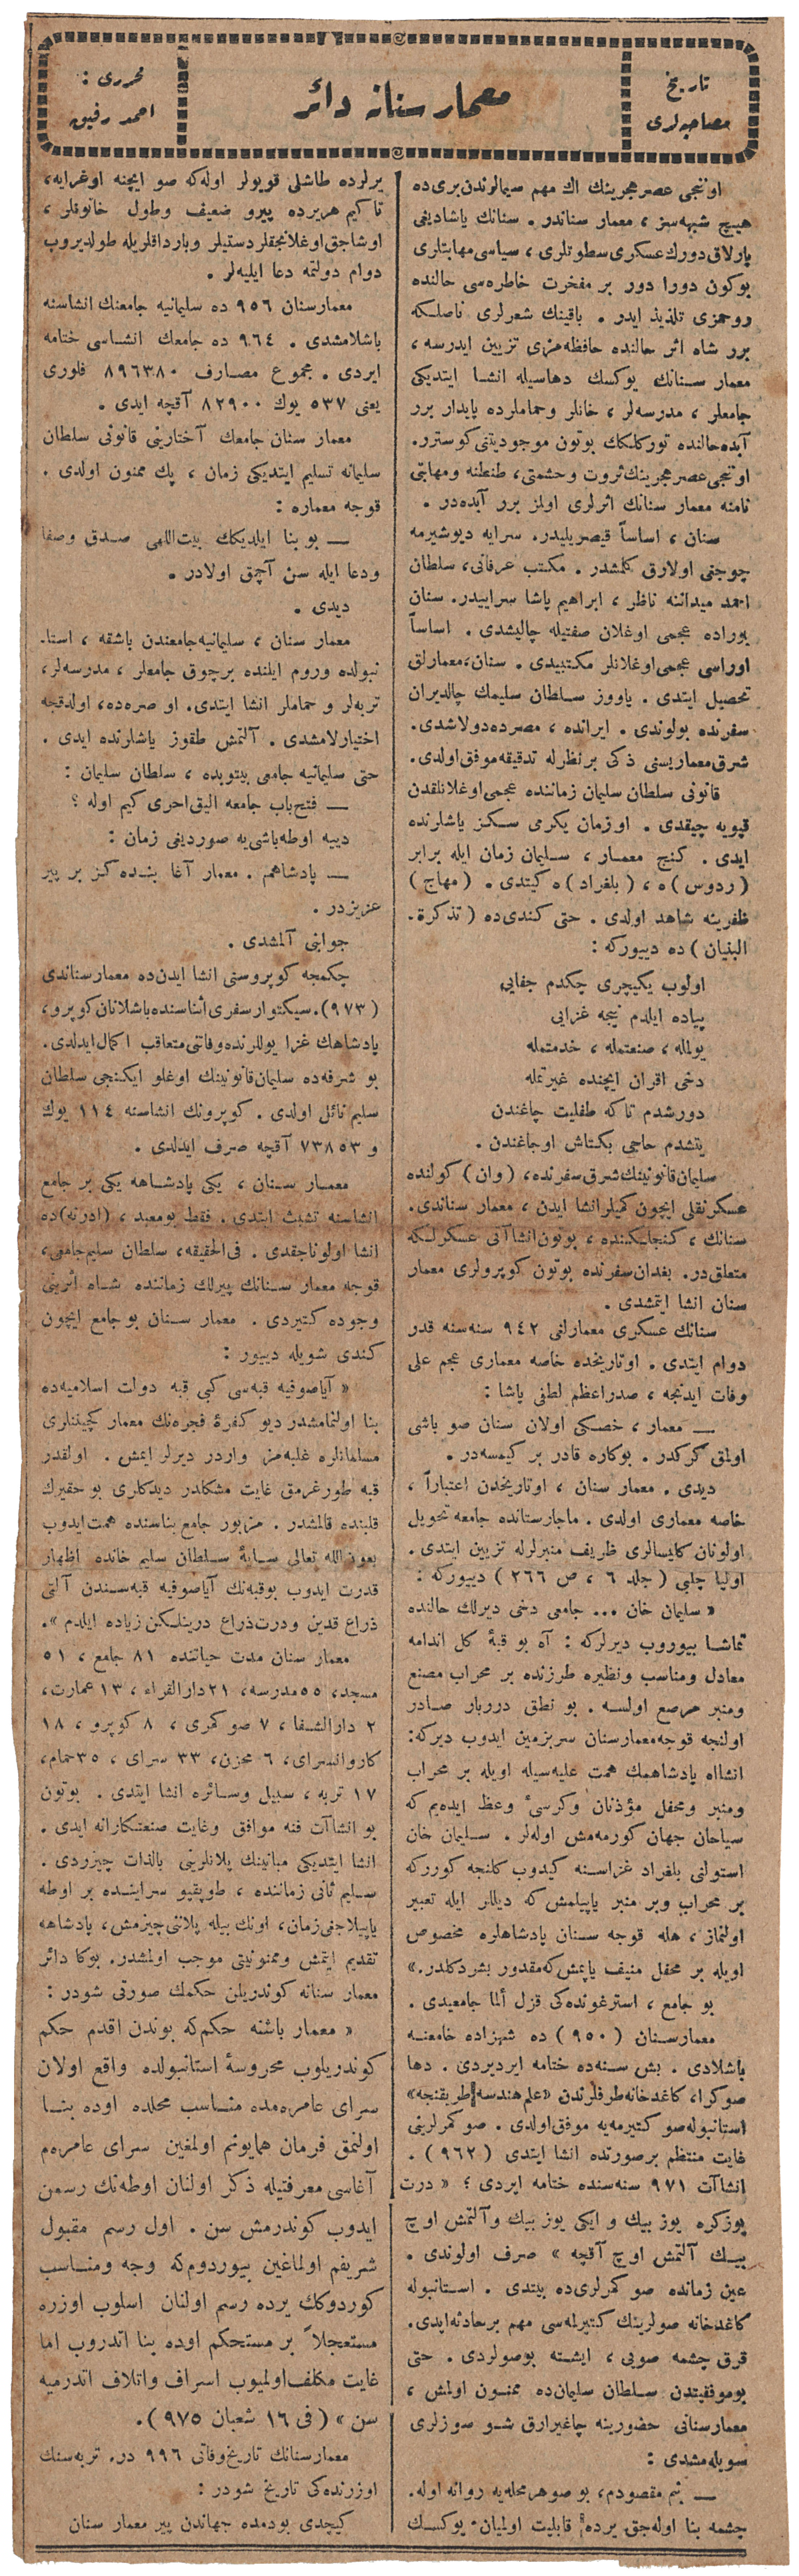 تاريخ
مصاحبه‌لرى
معمار سنانه دائر
محررى :
احمد رفيق
اوننجى عصر هجرينك اك مهم سيمالرندن برى ده
هيچ شبهه‌سز ، معمار سناندر . سنانك ياشاديغى
پارلاق دورك عسكرى سطوتلرى ، سياسى مهابتلرى
بوكون دورا دور بر مفخرت خاطره‌سى حالنده
روحمزى تلذيذ ايدر . باقينك شعرلرى ناصلكه
برر شاه اثر حالنده حافظه‌مزى تزيين ايدرسه ،
معمار سنانك يوكسك دهاسيله انشا ايتديكى
جامعلر ، مدرسه‌لر ، خانلر و حماملرده پايدار برر
آبده حالنده توركلكك بوتون موجوديتنى كوسترر.
اوننجى عصر هجرينك ثروت وحشمتى ، طنطنه ومهابتى
نامنه معمار سنانك اثرلرى اولمز برر آبده‌در .
سنان ، اساساً قيصريليدر. سرايه ديوشيرمه
چوجنى اولارق كلمشدر . مكتب عرفانى ، سلطان
احمد ميداننه ناظر ، ابراهيم پاشا سراييدر. سنان
بوراده عجمى اوغلان صفتيله چاليشدى . اساساً
اوراسى عجمى اوغلانلر مكتبيدى . سنان ، معمارلق
تحصيل ايتدى . ياووز سلطان سليمك چالديران
سفرنده بولوندى . ايرانده ، مصرده دولاشدى.
شرق معماريسنى ذكى بر نظرله تدقيقه موفق اولدى.
قانونى سلطان سليمان زماننده عجمى اوغلانلقدن
قپويه چيقدى . اوزمان يكرمى سكز ياشلرنده
ايدى . كنج معمار ، سليمان زمان ايله برابر
(ردوس) ه ، (بلغراد) ه كيتدى . (مهاج)
ظفرينه شاهد اولدى . حتى كندى ده (تذكرة-
البنيان) ده دييوركه :
اولوب يكيچرى چكدم جفايى
پياده ايلدم نيجه غزايى
يولمله ، صنعتمله ، خدمتمله
دخى اقران ايچنده غيرتمله
دورشدم تاكه طفليت چاغندن
يتشدم حاجى بكتاش اوجاغندن .
سليمان قانونينك شرق سفرنده ، (وان) كولنده
عسكر نقلى ايچون كميلر انشا ايدن ، معمار سناندى.
سنانك ، كنجلكنده ، بوتون انشاآتى عسكرلكه
متعلق‌در. بغدان سفرنده بوتون كوپرولرى معمار
سنان انشا ايتمشدى .
سنانك عسكرى معمارلغى ٩٤٢ سنه‌سنه قدر
دوام ايتدى . اوتاريخده خاصه معمارى عجم على
وفات ايدنجه ، صدراعظم لطفى پاشا :
— معمار ، خصكى اولان سنان صو باشى
اولمق كركدر . بوكاره قادر بر كيمسه‌در .
ديدى . معمار سنان ، اوتاريخدن اعتباراً ،
خاصه معمارى اولدى . ماجارستانده جامعه تحويل
اولونان كليسالرى ظريف منبرلرله تزيين ايتدى .
اوليا چلبى (جلد ٦ ، ص ٢٦٦) دييوركه :
« سليمان خان ... جامعى دخى ديرلك حالنده
تماشا بيوروب ديرلركه : آه بو قبهٔ كل اندامه
معادل ومناسب ونظيره طرزنده بر محراب مصنع
ومنبر مرصع اولسه . بو نطق درربار صادر
اولنجه قوجه معمار سنان سربزمين ايدوب ديركه:
انشاالله پادشاهمك همت عليه‌سيله اويله بر محراب
ومنبر ومحفل مؤذنان وكرسئ وعظ ايده‌يم كه
سياحان جهان كورمه‌مش اوله‌لر . سليمان خان
استولنى بلغراد غزاسنه كيدوب كلنجه كورركه
بر محراب وبر منبر ياپيلمش كه ديللر ايله تعبير
اولنماز ، هله قوجه سنان پادشاهلره مخصوص
اويله بر محفل منيف ياپمش كه مقدور بشر دكلدر.»
بو جامع ، استرغونده‌كى قزل الما جامعيدى .
معمار سنان (٩٥٠) ده شهزاده جامعنه
باشلادى . بش سنه‌ده ختامه ايرديردى . دها
صوكرا، كاغدخانه طرفلرندن «علم هندسه طريقنجه»
استانبوله صو كتيرمه‌يه موفق اولدى . صو كمرلرينى
غايت منتظم بر صورتده انشا ايتدى (٩٦٢) .
انشاآت ٩٧١ سنه‌سنده ختامه ايردى ؛ « درت
يوزكره يوز بيك و ايكى يوز بيك و آلتمش اوچ
بيك آلتمش اوچ آقچه » صرف اولوندى .
عين زمانده صو كمرلرى ده بيتدى . استانبوله
كاغدخانه صولرينك كتيرلمه‌سى مهم بر حادثه ايدى.
قرق چشمه صويى ، ايشته بوصولردى . حتى
بوموفقيتدن سلطان سليمان ده ممنون اولمش ،
معمار سنانى حضورينه چاغيرارق شو سوزلرى
سويله‌مشدى :
— بنم مقصودم ، بو صو هر محله‌يه روانه اوله.
چشمه بنا اوله‌جق يرده قابليت اولميان يوكسك
يرلرده طاشلى قويولر اوله‌كه صو ايچنه اوغرايه،
تا كيم هربرده پيرو ضعيف وطول خاتونلر ،
اوشاجق اوغلانجقلر دستيلر و بارداقلريله طولديروب
دوام دولتمه دعا ايليه‌لر .
معمار سنان ٩٥٦ ده سليمانيه جامعنك انشاسنه
باشلامشدى . ٩٦٤ ده جامعك انشاسى ختامه
ايردى . مجموع مصارف ٨٩٦٣٨٠ فلورى
يعنى ٥٣٧ يوك ٨٢٩٠٠ آقچه ايدى .
معمار سنان جامعك آختارينى قانونى سلطان
سليمانه تسليم ايتديكى زمان ، پك ممنون اولدى .
قوجه معماره :
— بو بنا ايلديكك بيت‌اللهى صدق وصفا
ودعا ايله سن آچمق اولادر .
ديدى .
معمار سنان ، سليمانيه جامعندن باشقه ، استا-
نبولده وروم ايلنده برچوق جامعلر ، مدرسه‌لر،
تربه‌لر و حماملر انشا ايتدى. او صره‌ده، اولدقجه
اختيارلامشدى . آلتمش طقوز ياشلرنده ايدى .
حتى سليمانيه جامعى بيتوبده ، سلطان سليمان :
— فتح باب جامعه اليق احرى كيم اوله ؟
دييه اوطه باشى‌يه صورديغى زمان :
— پادشاهم . معمار آغا بنده‌كز بر پير
عزيزدر .
جوابنى آلمشدى .
چكمجه كوپروسنى انشا ايدن ده معمار سناندى
(٩٧٣). سيكتوار سفرى اثناسنده باشلانان كوپرو،
پادشاهك غزا يوللرنده وفاتنى متعاقب اكمال ايدلدى.
بو شرفه‌ده سليمان قانونينك اوغلو ايكنجى سلطان
سليم نائل اولدى . كوپرونك انشاسنه ١١٤ يوك
و ٧٣٨٥٣ آقچه صرف ايدلدى .
معمار سنان ، يكى پادشاهه يكى بر جامع
انشاسنه تشبث ايتدى . فقط بومعبد ، (ادرنه) ده
انشا اولوناجقدى . فى‌الحقيقه، سلطان سليم جامعى،
قوجه معمار سنانك پيرلك زماننده شاه اثرينى
وجوده كتيردى . معمار سنان بو جامع ايچون
كندى شويله دييور :
« آياصوفيه قبه‌سى كبى قبه دولت اسلاميه‌ده
بنا اولنمامشدر ديو كفرهٔ فجره‌نك معمار كچيننلرى
مسلمانلره غلبه‌مز واردر ديرلر ايمش . اولقدر
قبه طورغرمق غايت مشكلدر ديدكلرى بو حقيرك
قلبنده قالمشدر . مزبور جامع بناسنده همت ايدوب
بعون‌الله تعالى سايهٔ سلطان سليم خانده اظهار
قدرت ايدوب بوقبه‌نك آياصوفيه قبه‌سندن آلتى
ذراع قدين ودرت ذراع درينلكن زياده ايلدم ».
معمار سنان مدت حياتنده ٨١ جامع ، ٥١
مسجد، ٥٥ مدرسه، ٢١ دارالقراء ، ١٣ عمارت،
٢ دارالشفا ، ٧ صو كمرى ، ٨ كوپرو ، ١٨
كاروانسراى، ٦ مخزن، ٣٣ سراى ، ٣٥ حمام،
١٧ تربه ، سبيل وسائره انشا ايتدى . بوتون
بو انشاآت فنه موافق وغايت صنعتكارانه ايدى .
انشا ايتديكى مبانينك پلانلرينى بالذات چيزردى .
سليم ثانى زماننده ، طوپقپو سراينده بر اوطه
ياپيلاجغى زمان، اونك بيله پلاننى چيزمش، پادشاهه
تقديم ايتمش وممنونيتنى موجب اولمشدر. بوكا دائر
معمار سنانه كوندريلن حكمك صورتى شودر :
« معمار باشنه حكم‌كه بوندن اقدم حكم
كوندريلوب محروسهٔ استانبولده واقع اولان
سراى عامره‌مده مناسب محلده اوده بنا
اولنمق فرمان همايونم اولمغين سراى عامره‌م
آغاسى معرفتيله ذكر اولنان اوطه‌نك رسمن
ايدوب كوندرمش سن . اول رسم مقبول
شريفم اولماغين بيوردوم‌كه وجه ومناسب
كوردوكك يرده رسم اولنان اسلوب اوزره
مستعجلاً بر مستحكم اوده بنا اتدروب اما
غايت مكلف اولميوب اسراف واتلاف اتدرميه
سن » (فى ١٦ شعبان ٩٧٥).
معمار سنانك تاريخ وفاتى ٩٩٦ در. تربه‌سنك
اوزرنده‌كى تاريخ شودر :
كيچدى بودمده جهاندن پير معمار سنان